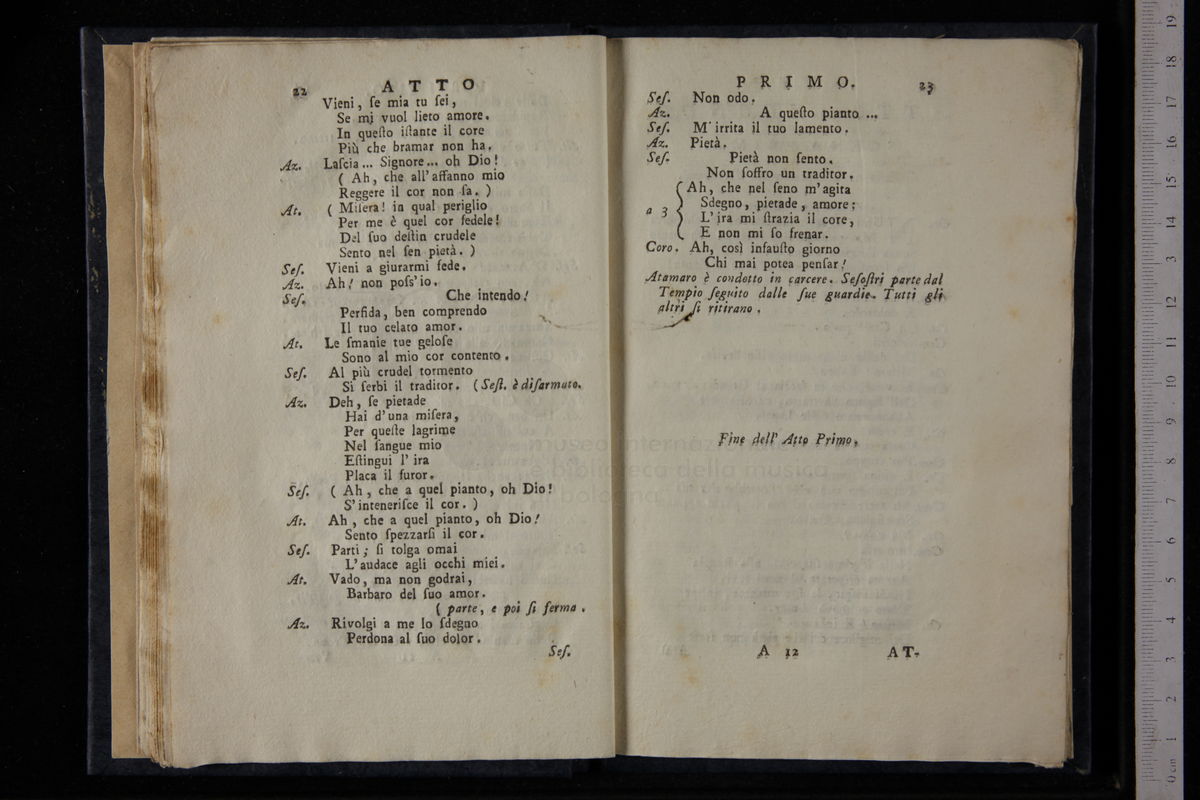 22 ATTO
Vieni, ſe mia tu ſei,
Se mi vuol lieto amore.
In queſto iſtante il core
Più che bramar non ha.
Az. Laſcia... Signore... oh Dio!
( Ah, che all'affanno mio
Reggere il cor non ſa. )
At. ( Miſera! in qual periglio
Per me è quel cor fedele!
Del ſuo deſtin crudele
Sento nel ſen pietà. )
Seſ. Vieni a giurarmi fede.
Az. Ah! non poſs'io.
Seſ. Che intendo!
Perfida, ben comprendo
Il tuo celato amor.
At. Le ſmanie tue geloſe
Sono al mio cor contento.
Seſ. Al più crudel tormento
Si ſerbi il traditor. (Seſt. è diſarmato.
Az. Deh, ſe pietade
Hai d'una miſera,
Per queſte lagrime
Nel ſangue mio
Eſtingui l' ira
Placa il furor.
Seſ. ( Ah, che a quel pianto, oh Dio!
S'inteneriſce il cor. )
At. Ah, che a quel pianto, oh Dio!
Sento ſpezzarſi il cor.
Seſ. Parti; ſi tolga omai
L'audace agli occhi miei.
At. Vado, ma non godrai,
Barbaro del ſuo amor.
( parte, e poi ſi ferma.
Az. Rivolgi a me lo ſdegno
Perdona al ſuo dolor.
Seſ.
PRIMO. 23
Seſ. Non odo.
Az. A queſto pianto ...
Seſ. M'irrita il tuo lamento.
Az. Pietà.
Seſ. Pietà non ſento.
Non ſoffro un traditor.
a 3 { Ah, che nel ſeno m'agita
Sdegno, pietade, amore;
L'ira mi ſtrazia il core,
E non mi ſo frenar.
Coro. Ah, così infauſto giorno
Chi mai potea penſar!
Atamaro è condotto in carcere. Seſoſtri parte dal
Tempio ſeguito dalle ſue guardie. Tutti gli
altri ſi ritirano.
Fine dell' Atto Primo.
A 12 AT-
museo internazionale
e biblioteca della musica
bologna
0 cm 1 2 3 4 5 6 7 8 9 10 11 12 13 14 15 16 17 18 19